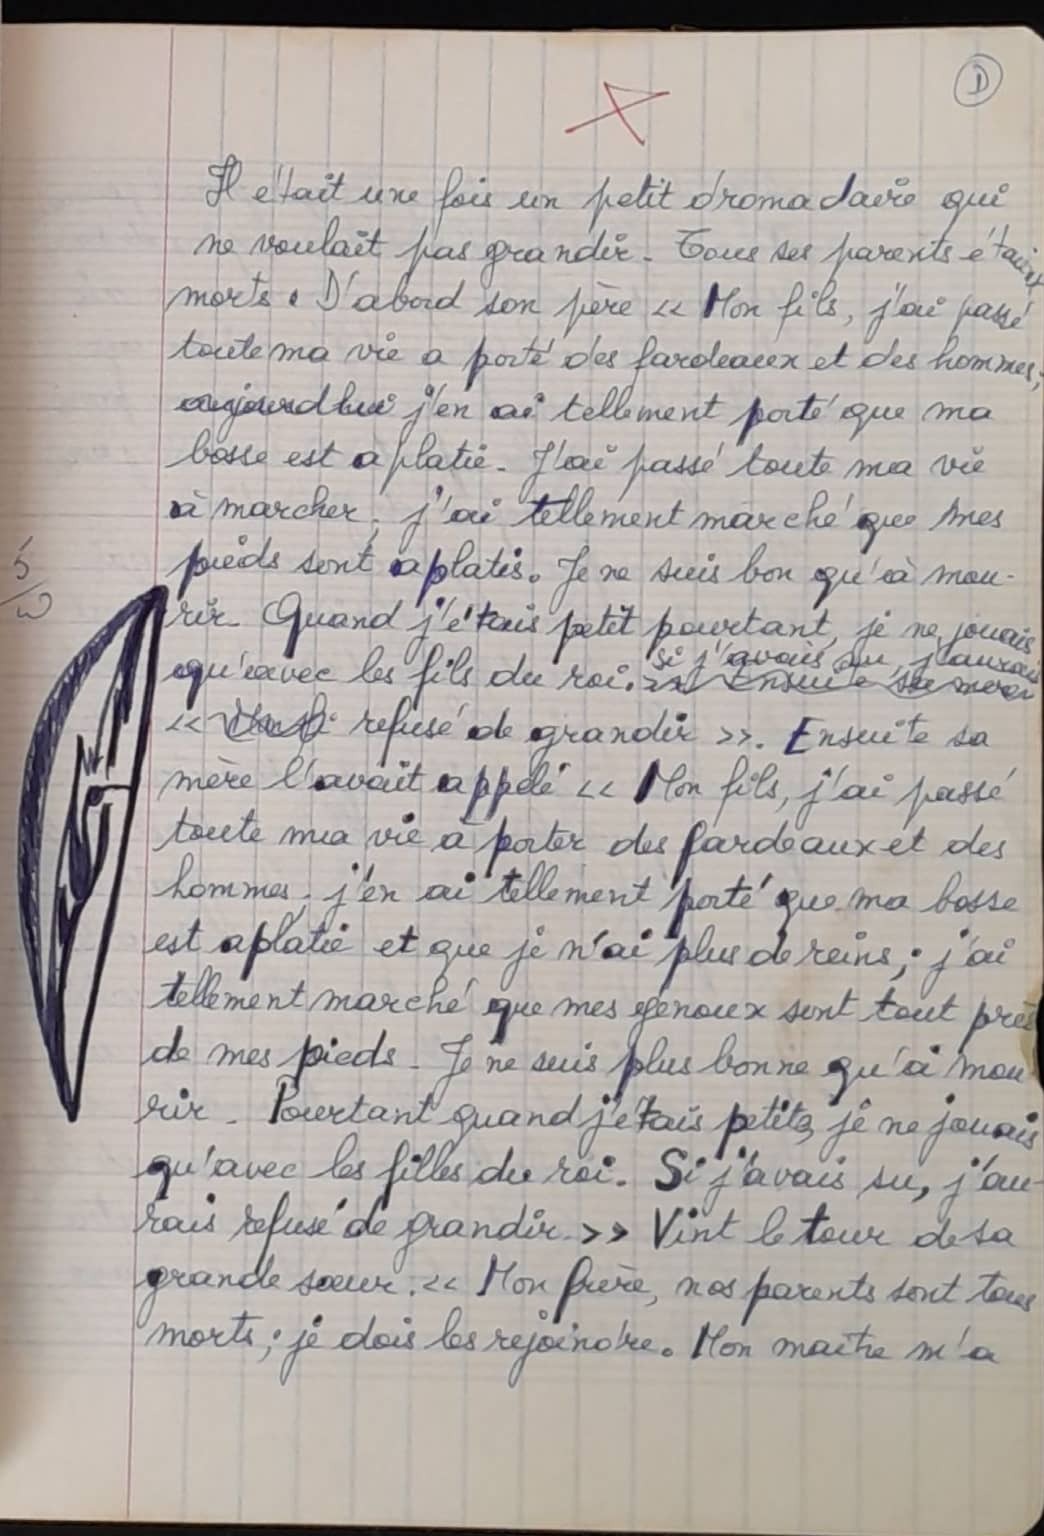 D
Il était une fois un petit dromadaire qui
ne voulait pas grandir. Tous ses parents étaient
morts. D'abord son père << Mon fils, j'ai passé
toute ma vie a porté des fardeaux et des hommes;
aujourdhui j'en ai tellement porté que ma
bosse est aplatie. J'ai passé toute ma vie
à marcher; j'ai tellement marché que mes
pieds sont aplatis. Je ne suis bon qu'à mou-
rir. Quand j'étais petit pourtant, je ne jouais
qu'avec les fils du roi. si j'avais su, j'aurais
>> Ensuite sa mère
<< refusé de grandir >>. Ensuite sa
mère l'avait appelé << Mon fils, j'ai passé
toute ma vie a porter des fardeaux et des
hommes; j'en ai tellement porté que ma bosse
est aplatie et que je n'ai plus de reins; j'ai
tellement marché que mes genoux sont tout près
de mes pieds. Je ne suis plus bonne qu'à mou
rir. Pourtant quand j'étais petite, je ne jouais
qu'avec les filles du roi. Si j'avais su, j'au-
rais refusé de grandir. >> Vint le tour de sa
grande sœur. << Mon frère, nos parents sont tous
morts; je dois les rejoindre. Mon maître m'a